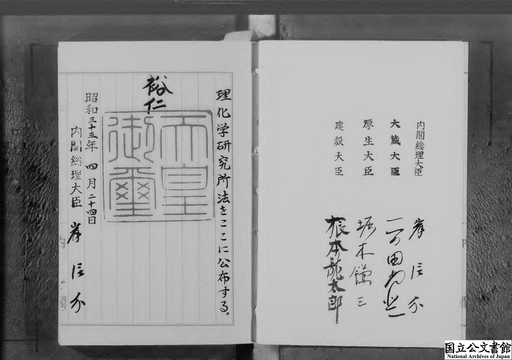 内閣総理大臣 岸信介
大蔵大臣 一万田尚登
厚生大臣 堀木鎌三
建設大臣 根本龍太郎
理化学研究所法をここに公布する。
裕仁
天皇御璽
昭和三十三年四月二十四日
内閣総理大臣 岸信介
国立公文書館
National Archives of Japan